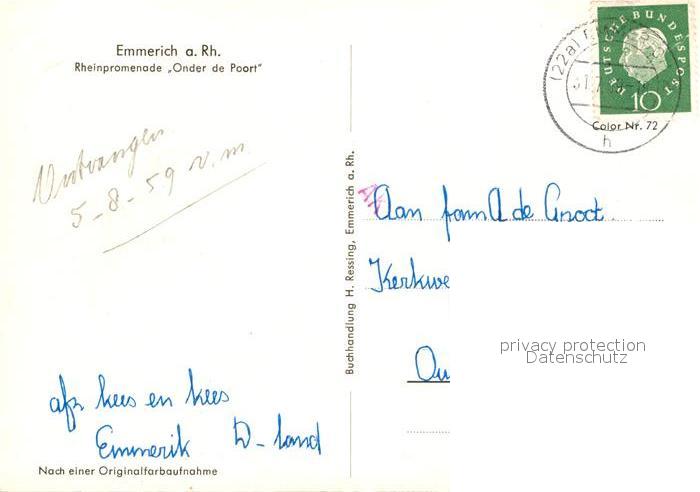 Emmerich a. Rh.
Rheinpromenade „Onder de Poort"
DEUTSCHE BUNDESPOST
10
(22a)
Color Nr. 72
h
Ontvangen
5-8-59 v.m.
Buchhandlung H. Ressing, Emmerich a. Rh.
Aan fam A de Groot.
Kerkwe
Ou
privacy protection
Datenschutz
afz kees en kees
Emmerik D-land
Nach einer Originalfarbaufnahme